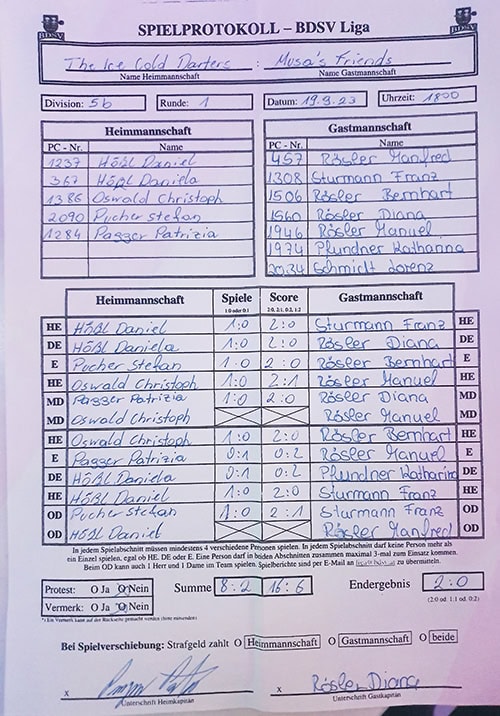 BDSV SPIELPROTOKOLL – BDSV Liga BDSV
The Ice Cold Darters : Musa's Friends
Name Heimmannschaft Name Gastmannschaft
Division: 5b Runde: 1 Datum: 19.9.23 Uhrzeit: 1800
Heimmannschaft Gastmannschaft
PC - Nr. Name PC - Nr. Name
1237 Hößl Daniel 457 Rösler Manfred
367 Hößl Daniela 1308 Sturmann Franz
1386 Oswald Christoph 1506 Rösler Bernhart
2090 Pucher Stefan 1560 Rösler Diana
1284 Pagger Patrizia 1946 Rösler Manuel
1974 Pfundner Katharina
2034 Schmidt Lorenz
Heimmannschaft Spiele Score Gastmannschaft
1:0 oder 0:1 2:0, 2:1, 0:2, 1:2
HE Hößl Daniel 1:0 2:0 Sturmann Franz HE
DE Hößl Daniela 1:0 2:0 Rösler Diana DE
E Pucher Stefan 1:0 2:0 Rösler Bernhart E
HE Oswald Christoph 1:0 2:1 Rösler Manuel HE
MD Pagger Patrizia 1:0 2:0 Rösler Diana MD
MD Oswald Christoph Rösler Manuel MD
HE Oswald Christoph 1:0 2:0 Rösler Bernhart HE
E Pagger Patrizia 0:1 0:2 Rösler Manuel E
DE Hößl Daniela 0:1 0:2 Pfundner Katharina DE
HE Hößl Daniel 1:0 2:0 Sturmann Franz HE
OD Pucher Stefan 1:0 2:1 Sturmann Franz OD
OD Hößl Daniel Rösler Manfred OD
In jedem Spielabschnitt müssen mindestens 4 verschiedene Personen spielen. In jedem Spielabschnitt darf keine Person mehr als
ein Einzel spielen, egal ob HE, DE oder E. Eine Person darf in beiden Abschnitten zusammen maximal 3-mal zum Einsatz kommen.
Beim OD kann auch 1 Herr und 1 Dame im Team spielen. Spielberichte sind per E-Mail an zu übermitteln.
Protest: O Ja O Nein Summe 8:2 16:6 Endergebnis 2:0
Vermerk: O Ja O Nein (2:0 od. 1:1 od. 0:2)
*) Ein Vermerk kann auf der Rückseite gemacht werden (bitte ankreuzen)
Bei Spielverschiebung: Strafgeld zahlt O Heimmannschaft O Gastmannschaft O beide
x x Rösler Diana
Unterschrift Heimkapitän Unterschrift Gastkapitän